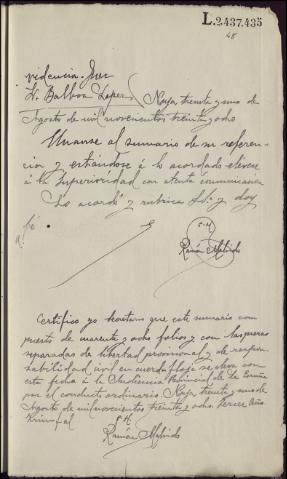 L.2.437.435
48
videncia. Juez
Sr. Balboa Lopez
Noya, treinta y uno de
Agosto de mil novecientos treinta y ocho
Unanse al sumario de su referen-
cia y estándose á lo acordado elévese
á la Superioridad con atenta comunicación
Lo acordó y rubrica S.S. y doy
fé
Ramón
Certifico yo Secretario que este sumario com-
puesto de cuarenta y ocho folios y con las piezas
separadas de libertad provisional y de respon-
sabilidad civil en cuerda floja se eleva con
esta fecha á la Audiencia Provincial de La Coruña
por el conducto ordinario. Noya treinta y uno de
Agosto de mil novecientos treinta y ocho. Tercer Año
Triunfal
Ramón